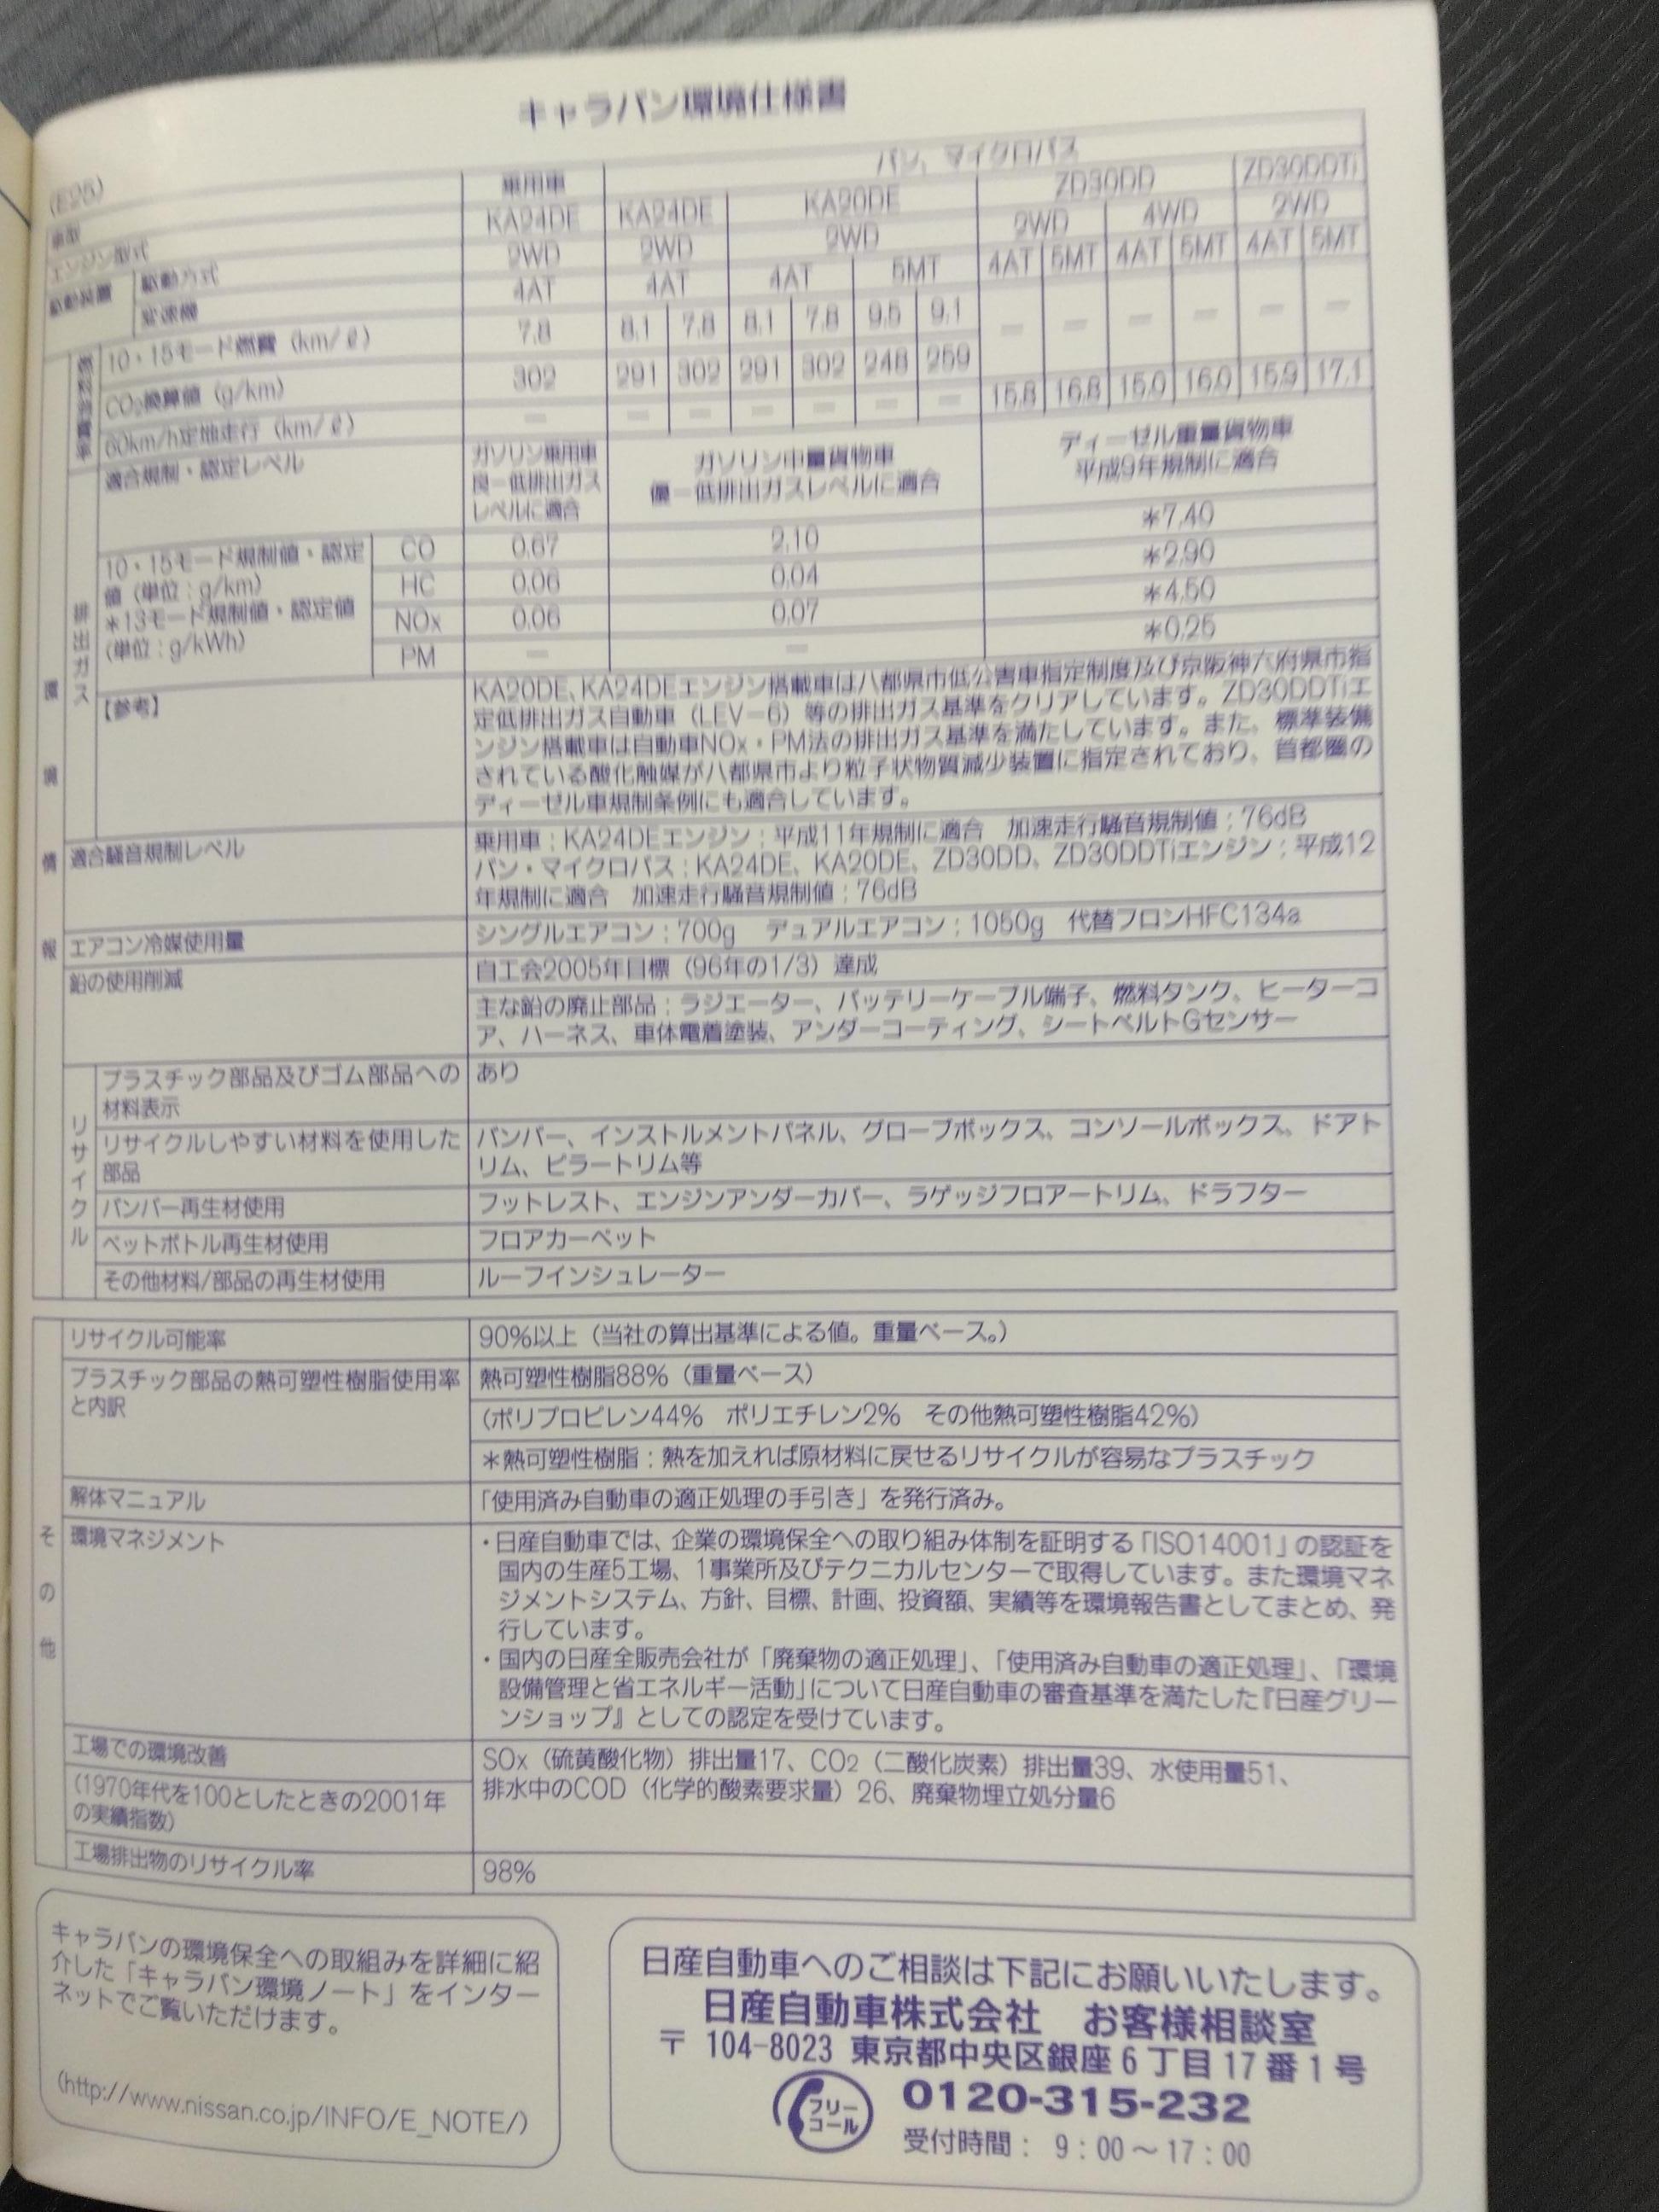 キャラバン環境仕様書
(E25)
車型 乗用車 バン、マイクロバス
エンジン型式 KA24DE KA24DE KA20DE ZD30DD ZD30DDTi
駆動装置 駆動方式 2WD 2WD 2WD 2WD 4WD 2WD
変速機 4AT 4AT 4AT 5MT 4AT 5MT 4AT 5MT 4AT 5MT
環境情報
10・15モード燃費 (km/ℓ) 7.8 8.1 7.8 8.1 7.8 9.5 9.1 − − − − − −
CO₂換算値 (g/km) 302 291 302 291 302 248 259
60km/h定地走行 (km/ℓ) − − − − − − − 15.8 16.8 15.0 16.0 15.9 17.1
排出ガス
適合規制・認定レベル
ガソリン乗用車
良−低排出ガス
レベルに適合
ガソリン中量貨物車
優−低排出ガスレベルに適合
ディーゼル重量貨物車
平成9年規制に適合
10・15モード規制値・認定
値 (単位：g/km)
＊13モード規制値・認定値
(単位：g/kWh)
CO 0.67 2.10 ＊7.40
HC 0.06 0.04 ＊2.90
NOx 0.06 0.07 ＊4.50
PM − − ＊0.25
【参考】
KA20DE、KA24DEエンジン搭載車は八都県市低公害車指定制度及び京阪神六府県市指
定低排出ガス自動車（LEV−6）等の排出ガス基準をクリアしています。ZD30DDTiエ
ンジン搭載車は自動車NOx・PM法の排出ガス基準を満たしています。また、標準装備
されている酸化触媒が八都県市より粒子状物質減少装置に指定されており、首都圏の
ディーゼル車規制条例にも適合しています。
適合騒音規制レベル
乗用車：KA24DEエンジン：平成11年規制に適合 加速走行騒音規制値：76dB
バン・マイクロバス：KA24DE、KA20DE、ZD30DD、ZD30DDTiエンジン：平成12
年規制に適合 加速走行騒音規制値：76dB
エアコン冷媒使用量 シングルエアコン：700g デュアルエアコン：1050g 代替フロンHFC134a
鉛の使用削減 自工会2005年目標（96年の1/3）達成
主な鉛の廃止部品：ラジエーター、バッテリーケーブル端子、燃料タンク、ヒーターコ
ア、ハーネス、車体電着塗装、アンダーコーティング、シートベルトGセンサー
リサイクル
プラスチック部品及びゴム部品への あり
材料表示
リサイクルしやすい材料を使用した バンパー、インストルメントパネル、グローブボックス、コンソールボックス、ドアト
部品 リム、ピラートリム等
バンパー再生材使用 フットレスト、エンジンアンダーカバー、ラゲッジフロアートリム、ドラフター
ペットボトル再生材使用 フロアカーペット
その他材料/部品の再生材使用 ルーフインシュレーター
その他
リサイクル可能率 90%以上（当社の算出基準による値。重量ベース。）
プラスチック部品の熱可塑性樹脂使用率 熱可塑性樹脂88%（重量ベース）
と内訳 （ポリプロピレン44% ポリエチレン2% その他熱可塑性樹脂42%）
＊熱可塑性樹脂：熱を加えれば原材料に戻せるリサイクルが容易なプラスチック
解体マニュアル 「使用済み自動車の適正処理の手引き」を発行済み。
環境マネジメント
・日産自動車では、企業の環境保全への取り組み体制を証明する「ISO14001」の認証を
国内の生産5工場、1事業所及びテクニカルセンターで取得しています。また環境マネ
ジメントシステム、方針、目標、計画、投資額、実績等を環境報告書としてまとめ、発
行しています。
・国内の日産全販売会社が「廃棄物の適正処理」、「使用済み自動車の適正処理」、「環境
設備管理と省エネルギー活動」について日産自動車の審査基準を満たした『日産グリー
ンショップ』としての認定を受けています。
工場での環境改善
(1970年代を100としたときの2001年
の実績指数)
SOx（硫黄酸化物）排出量17、CO2（二酸化炭素）排出量39、水使用量51、
排水中のCOD（化学的酸素要求量）26、廃棄物埋立処分量6
工場排出物のリサイクル率 98%
キャラバンの環境保全への取組みを詳細に紹
介した「キャラバン環境ノート」をインター
ネットでご覧いただけます。
(http://www.nissan.co.jp/INFO/E_NOTE/)
日産自動車へのご相談は下記にお願いいたします。
日産自動車株式会社 お客様相談室
〒 104-8023 東京都中央区銀座6丁目17番1号
フリーコール 0120-315-232
受付時間： 9：00〜17：00